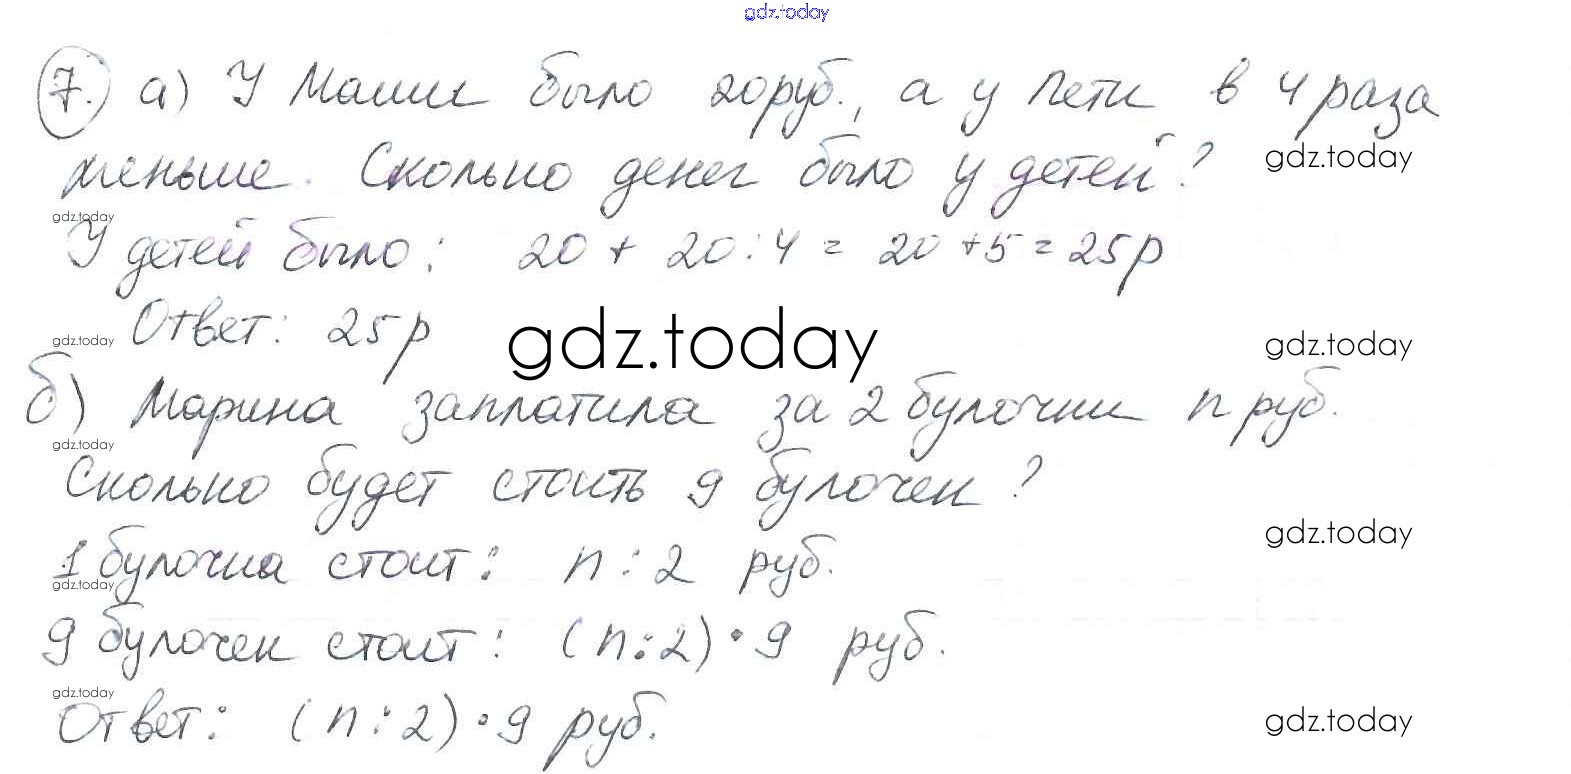 gdz.today
7. а) У Маши было 20 руб., а у Пети в 4 раза
меньше. Сколько денег было у детей?
gdz.today
gdz.today
У детей было: 20 + 20 : 4 = 20 + 5 = 25 р
Ответ: 25 р
gdz.today
gdz.today
gdz.today
б) Марина заплатила за 2 булочки n руб.
gdz.today
Сколько будет стоить 9 булочек?
gdz.today
1 булочка стоит: n : 2 руб.
gdz.today
9 булочек стоит: (n : 2) · 9 руб.
gdz.today
Ответ: (n : 2) · 9 руб.
gdz.today